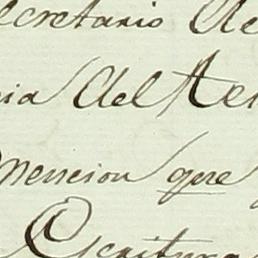 ecretario de
ia del Re
mencion que
Escritura